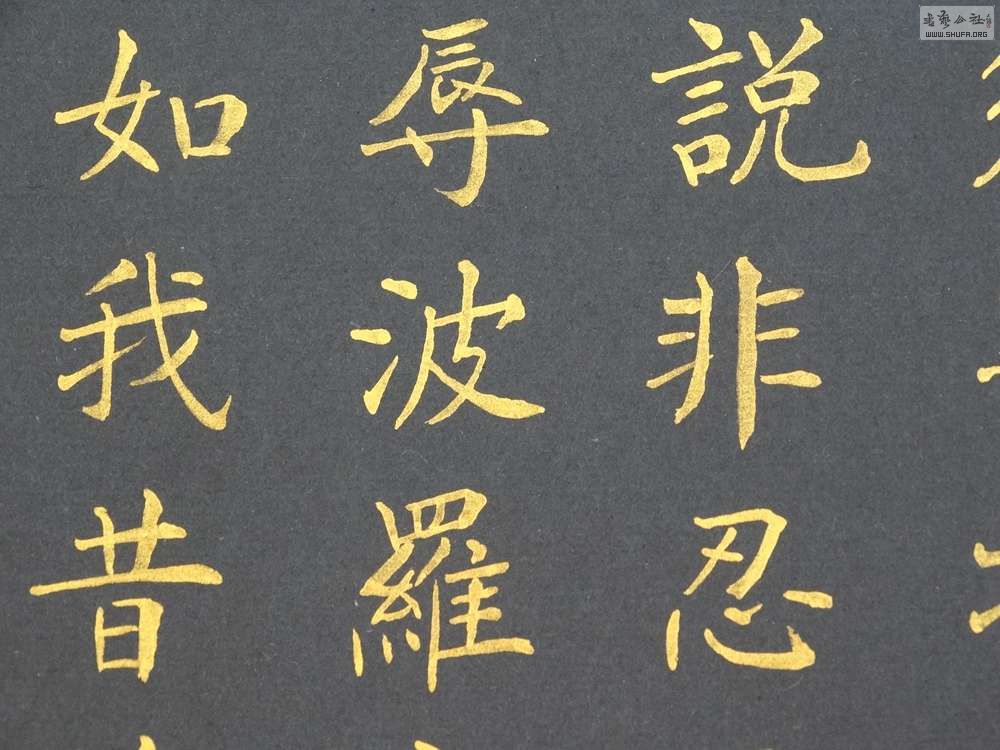 説非忍
辱波羅
如我昔
書藝公社
WWW.SHUFA.ORG